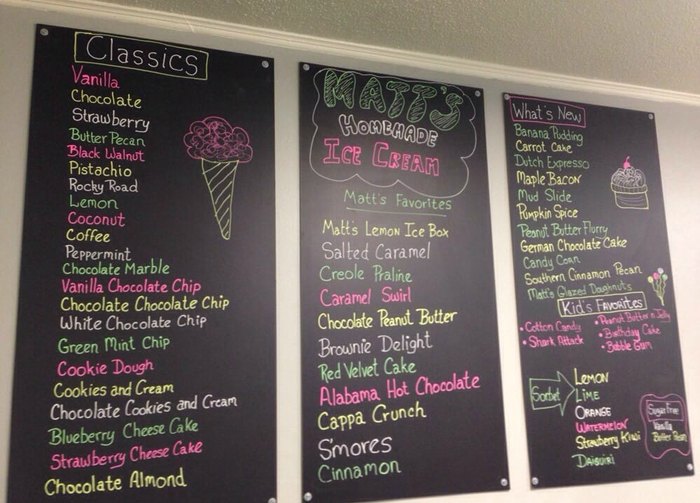 Classics
Vanilla
Chocolate
Strawberry
Butter Pecan
Black Walnut
Pistachio
Rocky Road
Lemon
Coconut
Coffee
Peppermint
Chocolate Marble
Vanilla Chocolate Chip
Chocolate Chocolate Chip
White Chocolate Chip
Green Mint Chip
Cookie Dough
Cookies and Cream
Chocolate Cookies and Cream
Blueberry Cheese Cake
Strawberry Cheese Cake
Chocolate Almond
MATT'S
HOMEMADE
ICE CREAM
Matt's Favorites
Matt's Lemon Ice Box
Salted Caramel
Creole Praline
Caramel Swirl
Chocolate Peanut Butter
Brownie Delight
Red Velvet Cake
Alabama Hot Chocolate
Cappa Crunch
S'mores
Cinnamon
What's New
Banana Pudding
Carrot Cake
Dutch Expresso
Maple Bacon
Mud Slide
Pumpkin Spice
Peanut Butter Flurry
German Chocolate Cake
Candy Corn
Southern Cinnamon Pecan
Matt's Glazed Doughnuts
Kid's Favorites
• Cotton Candy
• Shark Attack
• Peanut Butter n Jelly
• Birthday Cake
• Bubble Gum
Sorbet
LEMON
LIME
ORANGE
WATERMELON
Strawberry Kiwi
DAIQUIRI
Sugar Free
Vanilla
Butter Pecan